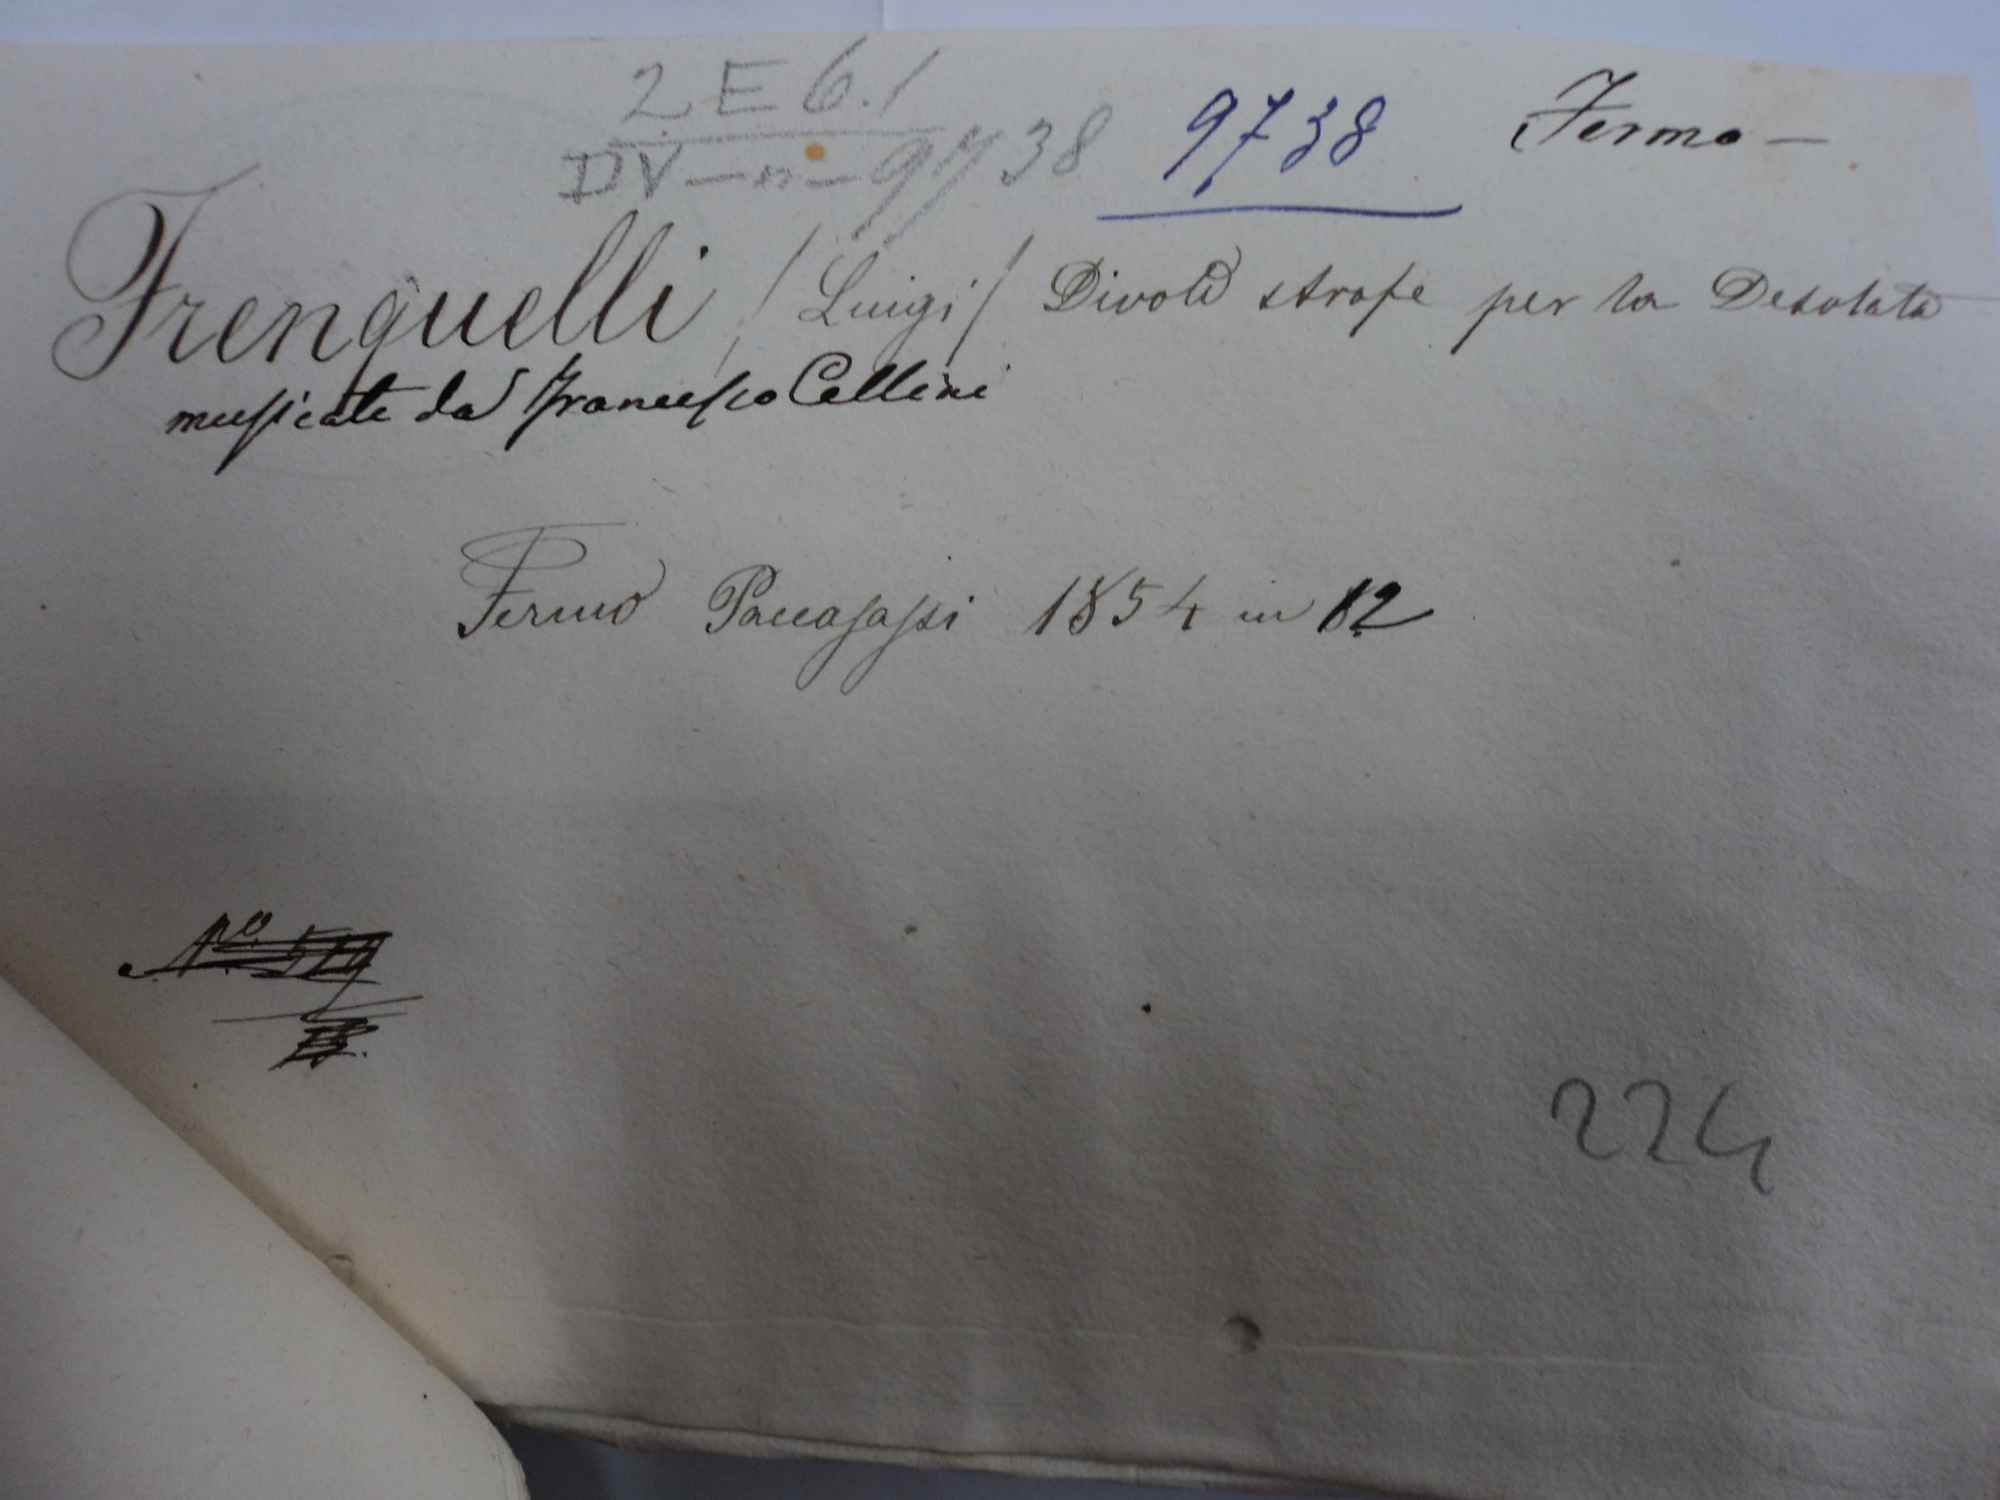 2 E 6.1
DV — n — 9738
9738
Fermo —
Frenquelli / Luigi / Divote strofe per la Desolata
musicate da Francesco Cellini
Fermo Paccasassi 1854 in 12
Nº 519
224